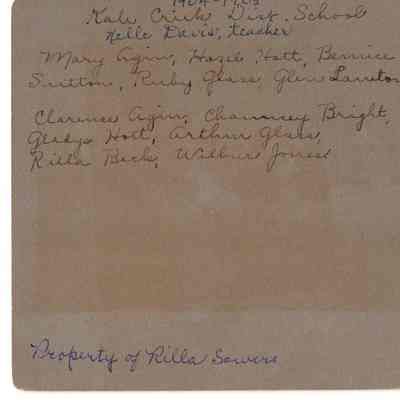 1904-1905
Kale Creek Dist. School
Nelle Davis, teacher
Mary Agin, Hazel Hott, Bernice
Sutton, Ruby Glass, Glen
Clarence Agin, Chauncey Bright,
Gladys Hott, Arthur Glass,
Rilla Beck, Wilbur Jones
Property of Rilla Sowers